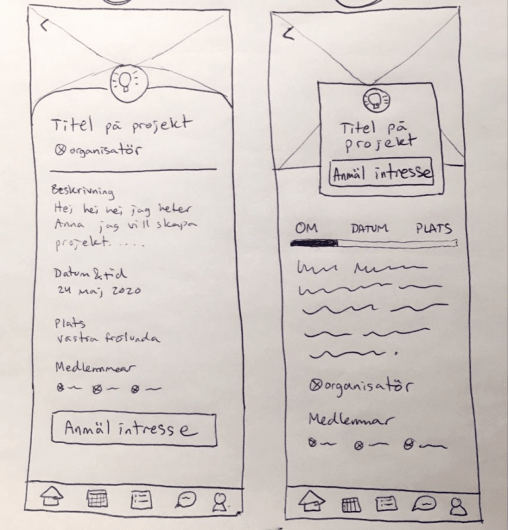 Titel på projekt
organisatör
Beskrivning
Hej hej hej jag heter
Anna jag vill skapa
projekt.....
Datum & tid
24 maj, 2020
Plats
västra frölunda
Medlemmar
Anmäl intresse
Titel på
projekt
Anmäl intresse
OM DATUM PLATS
organisatör
Medlemmar